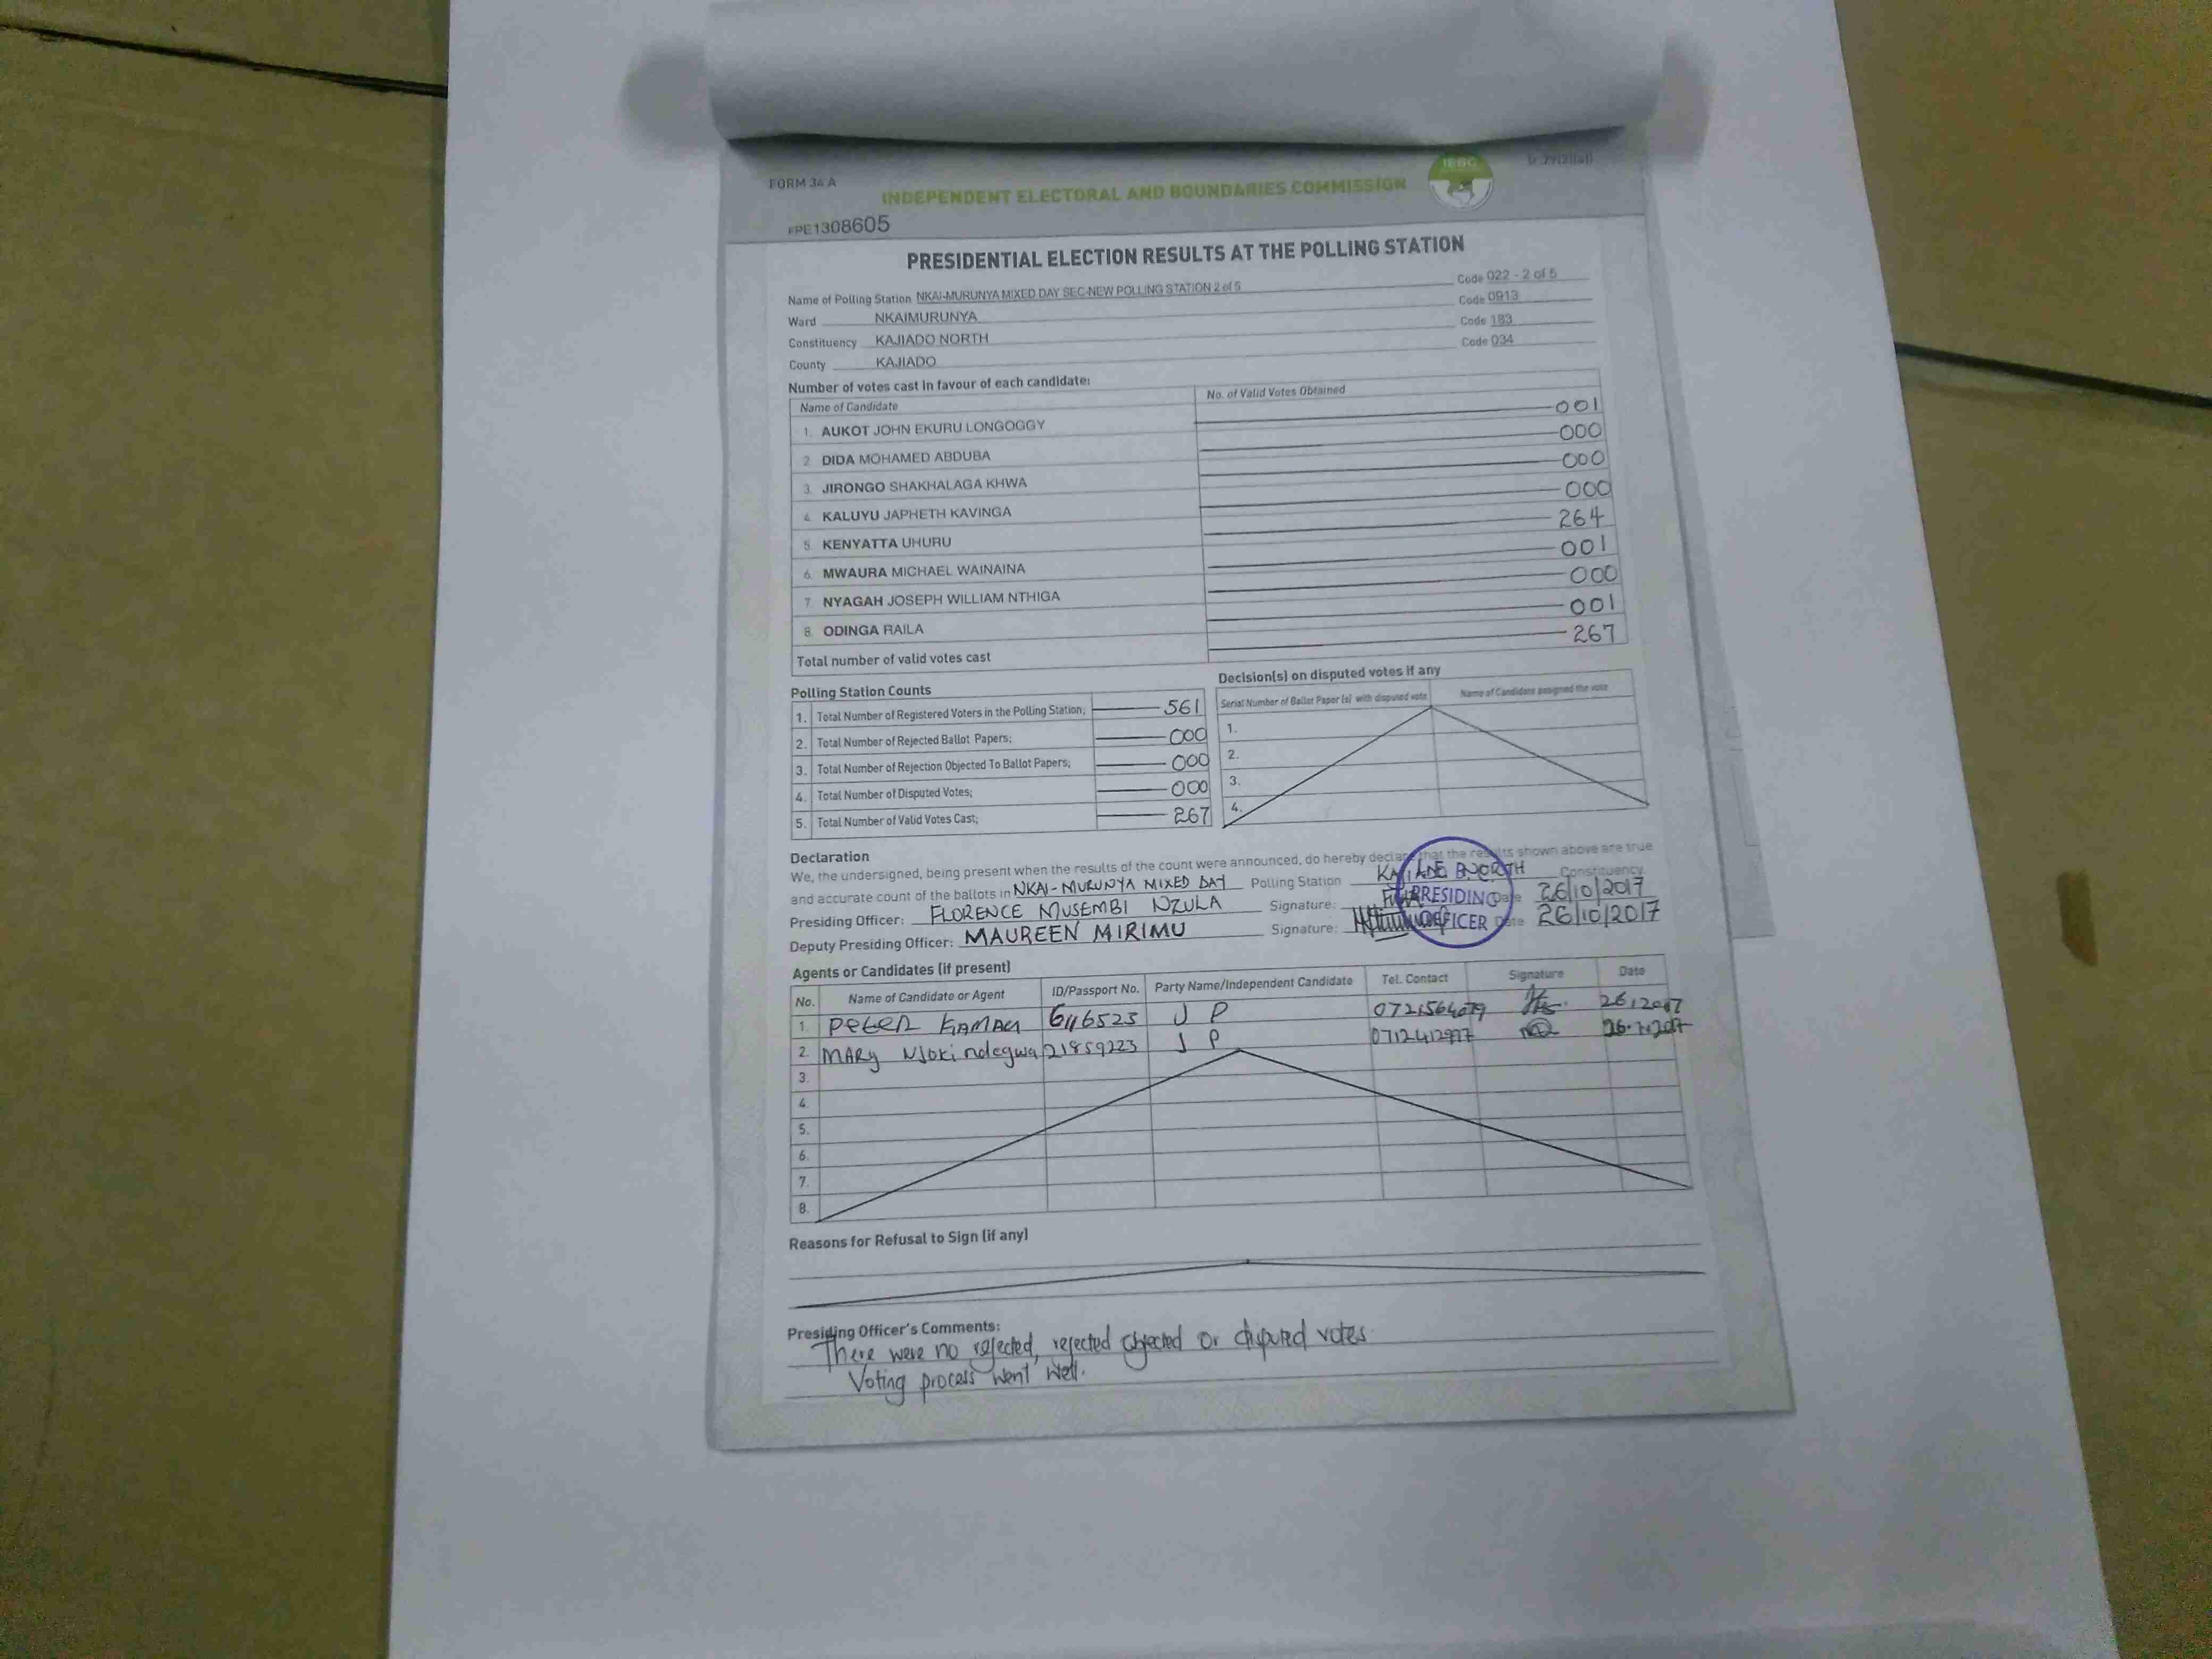 FORM 34 A
INDEPENDENT ELECTORAL AND BOUNDARIES COMMISSION
IEBC
FPE1308605
PRESIDENTIAL ELECTION RESULTS AT THE POLLING STATION
Name of Polling Station NKAI-MURUNYA MIXED DAY SEC-NEW POLLING STATION 2 of 5 Code 022 - 2 of 5
Ward NKAIMURUNYA Code 0913
Constituency KAJIADO NORTH Code 183
County KAJIADO Code 034
Number of votes cast in favour of each candidate:
Name of Candidate No. of Valid Votes Obtained
1. AUKOT JOHN EKURU LONGOGGY 001
2. DIDA MOHAMED ABDUBA 000
3. JIRONGO SHAKHALAGA KHWA 000
4. KALUYU JAPHETH KAVINGA 000
5. KENYATTA UHURU 264
6. MWAURA MICHAEL WAINAINA 001
7. NYAGAH JOSEPH WILLIAM NTHIGA 000
8. ODINGA RAILA 001
Total number of valid votes cast 267
Polling Station Counts
1. Total Number of Registered Voters in the Polling Station; 561
2. Total Number of Rejected Ballot Papers; 000
3. Total Number of Rejection Objected To Ballot Papers; 000
4. Total Number of Disputed Votes; 000
5. Total Number of Valid Votes Cast; 267
Decision(s) on disputed votes if any
Serial Number of Ballot Paper (s) with disputed vote Name of Candidate assigned the vote
1.
2.
3.
4.
Declaration
We, the undersigned, being present when the results of the count were announced, do hereby declare that the results shown above are true
and accurate count of the ballots in NKAI-MURUNYA MIXED DAY Polling Station KAJIADO NORTH Constituency
Presiding Officer: FLORENCE MUSEMBI NZULA Signature: Date 26/10/2017
Deputy Presiding Officer: MAUREEN MIRIMU Signature: Date 26/10/2017
PRESIDING
OFFICER
Agents or Candidates (if present)
No. Name of Candidate or Agent ID/Passport No. Party Name/Independent Candidate Tel. Contact Signature Date
1. PETER KAMAU 6116523 J P
2. MARY Njoki ndegwa 21859223 J P
3.
4.
5.
6.
7.
8.
Reasons for Refusal to Sign (if any)
Presiding Officer's Comments:
There were no rejected, rejected objected or disputed votes.
Voting process went well.